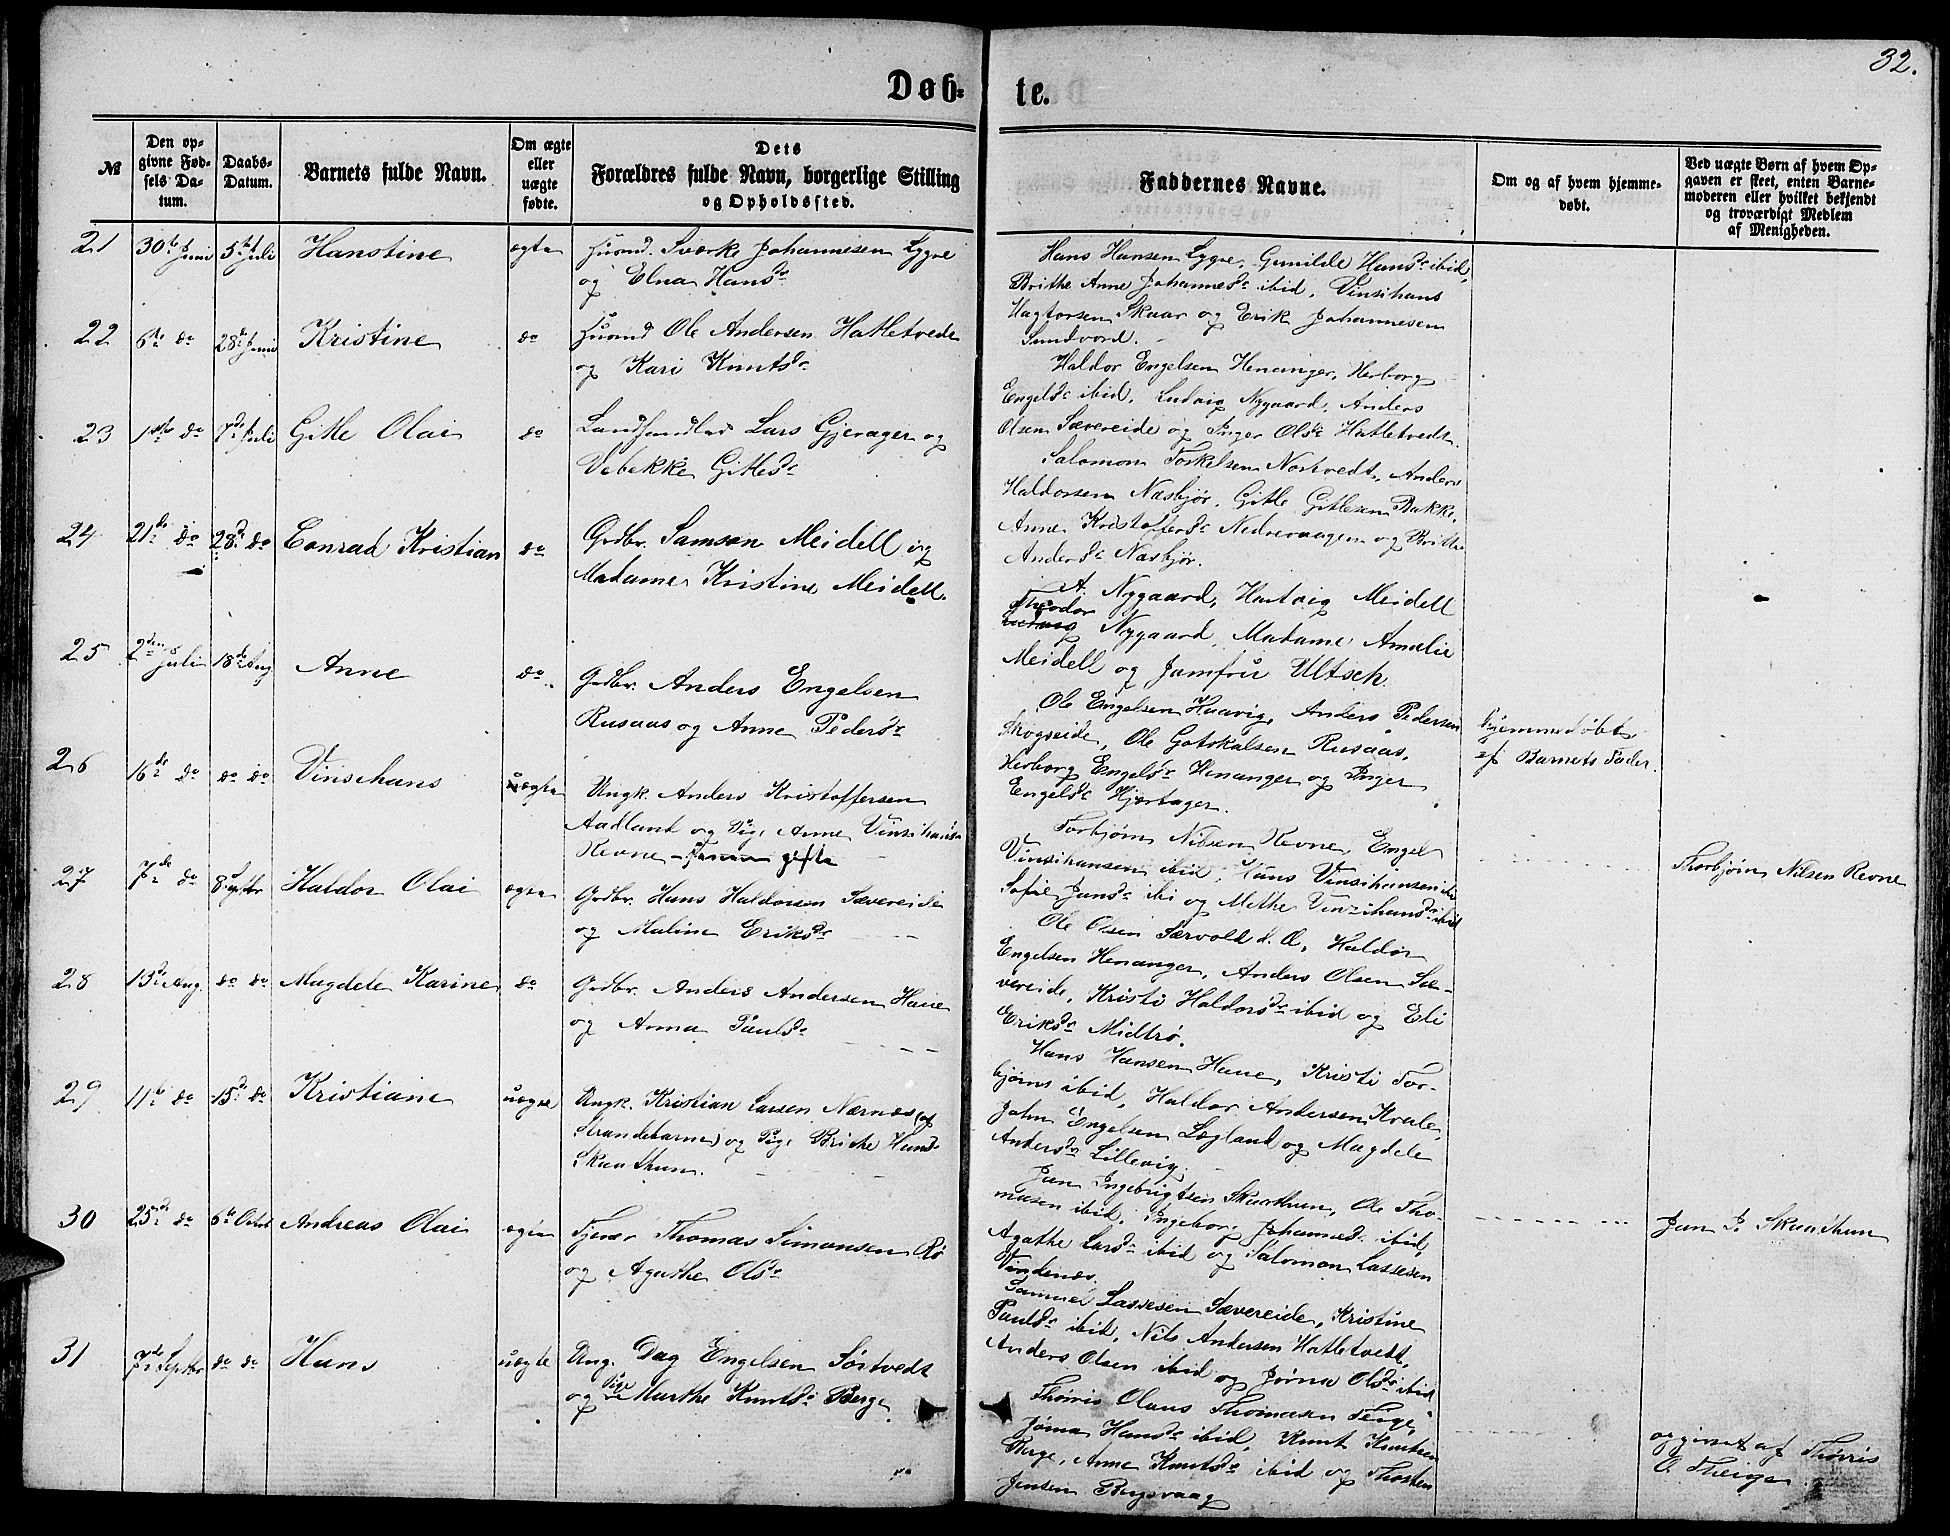 32.
Døb-
te.
№
Den op-
givne Fød-
sels Da-
tum.
Daabs-
Datum.
Barnets fulde Navn.
Om ægte
eller
uægte
fødte.
Dets
Forældres fulde Navn, borgerlige Stilling
og Opholdssted.
Faddernes Navne.
Om og af hvem hjemme-
døbt.
Ved uægte Børn af hvem Op-
gaven er skeet, enten Barne-
moderen eller hvilket bekjendt
og troværdigt Medlem
af Menigheden.
21 30te Juni 5te Juli Hanstine ægte Huusm. Sværke Johannesen Lygre
og Elna Hansdr
Hans Hansen Lygre, Gunilde Hansdr ibid,
Brithe Anne Johannesdr ibid, Vinsihans
Hagtorsen Skaar og Erik Johannesen
Sundvord.
22 6te do 28de Juni Kristine do Huusmd Ole Andersen Hatletvedt
og Kari Knutsdr
Haldor Engelsen Henanger, Herborg
Engelsdr ibid, Ludvig Nygaard, Anders
Olsen Sævereide og Inger Olsdr Hatletvedt.
23 1ste do 7de Juli Gitle Olai do Landhandler Lars Gjerager og
Vebekke Gitlesdr
Salomon Torkelsen Nortvedt, Anders
Haldorsen Næsbjør, Gitle Gitlesen Bakke,
Anne Kristoffersdr Nedrevaagen og Brithe
Andersdr Næsbjør.
24 21de do 28de do Conrad Kristian do Grdbr. Samson Meidell og
Madame Kristine Meidell.
A. Nygaard, Hartvig Meidell
Theodor
Nygaard, Madame Amalie
Meidell og Jomfru Ultsch.
25 2den Juli 18de Aug Anne do Grdbr. Anders Engelsen
Rusaas og Anne Pedersdr
Ole Engelsen Haavig, Anders Pedersen
Skogseide, Ole Gotskalsen Rusaas,
Herborg Engelsdr Henanger og Inger
Engelsdr Hjertager.
hjemmedøbt
af Barnets Fader.
26 16de do do do Vinsehans uægte Ungk. Anders Kristoffersen
Aadland og Pige Anne Vinsihansdr
Revne gifte
Torbjørn Nilsen Revne, Engel
Vinsihansen ibid, Hans Vinsihansen ibi
Sofie Jansdr ibi og Methe Vinzihansdr ibid
Thorbjørn Nilsen Revne
27 7de do 8 Septbr Haldor Olai ægte Grdbr. Hans Haldorsen Sævereide
og Malina Eriksdr
Ole Olsen Særvold d. Æ, Haldor
Engelsen Henanger, Anders Olsen Sæ-
vereide, Kristi Haldorsdr ibid og Eli
Eriksdr Midtrø.
28 15de Aug. do do Magdele Karine do Grdbr. Anders Andersen Haue
og Anna Paulsdr
Hans Hansen Haue, Kristi Tor-
bjørns ibid, Haldor Andersen Kvale,
John Engelsen Løgland og Magdele
Andersdr Lillevig.
29 11te do 15de do Kristiane uægte Ungk. Kristian Larsen Nærnes (af
Strandebarm) og Pige Brithe Hansd
Skaathun.
Jan Ingebrigtsen Skaathun, Ole Tho-
masen ibid, Ingeborg Johannesd. ibid,
Agathe Larsdr ibid og Salomon Lassesen
Vindenes.
Jan I. Skaathun
30 25de do 6te Octob Andreas Olai ægte Tjener Thomas Simonsen Rø
og Agathe Olsdr
Samuel Lassesen Sævereide, Kristine
Paulsdr ibid, Nils Andersen Hatletvedt,
Anders Olsen ibid og Jørna Olsdr ibid
31 7de Septbr do do Hans uægte Ung. Dag Engelsen Sørtvedt
og Pige Marthe Knutsdr Berge
Thorris Olaus Thomasen Teige,
Jørna Hansdr ibid, Knut Knutsen
Berge, Anne Knutsdr ibid og Thosten
Jensen Bergsvaag
opgivet af Thorris
O. Theige